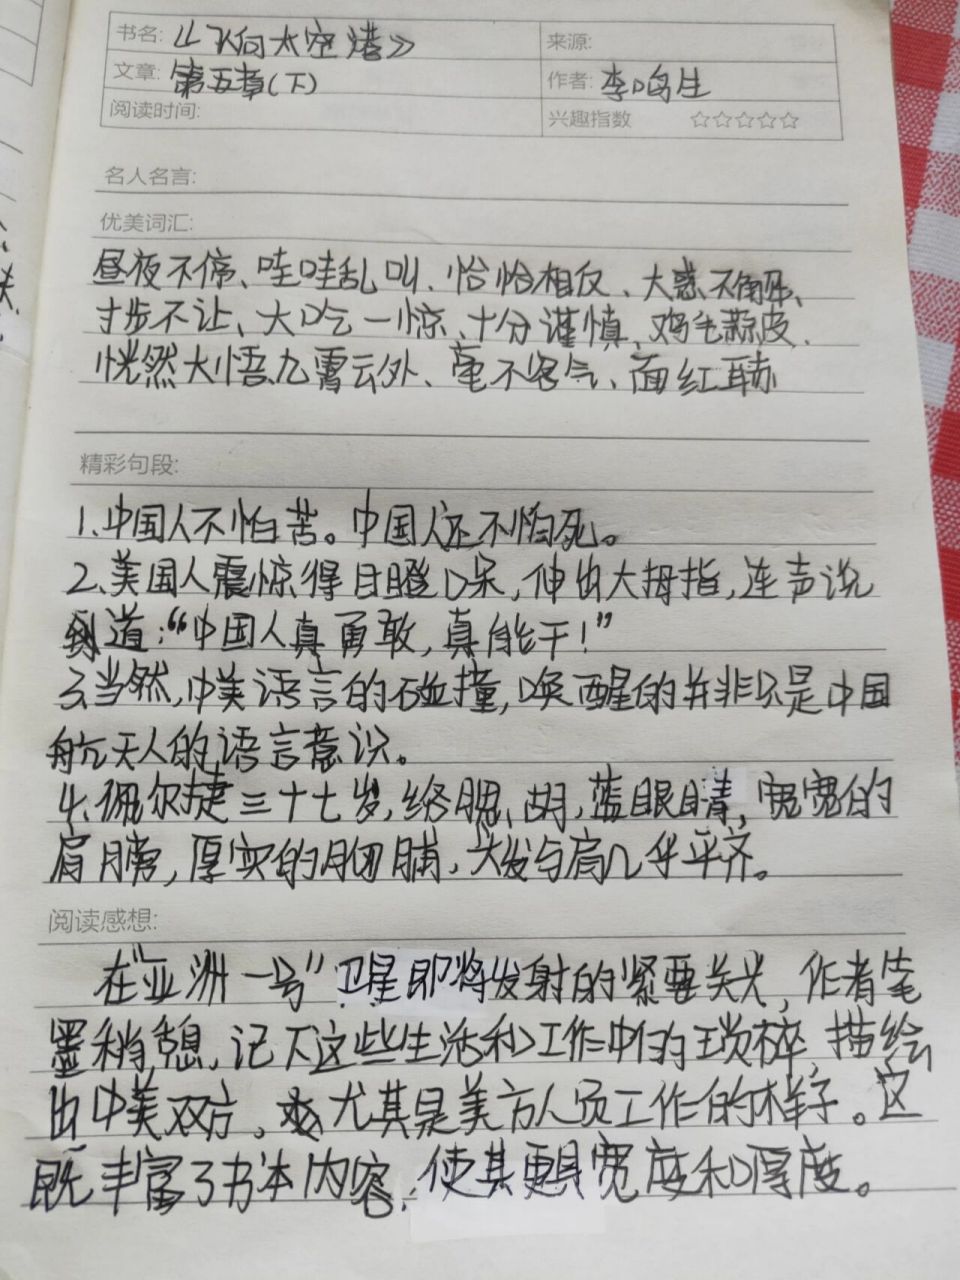 书名:《飞向太空港》
来源:
文章:第五章(下)
作者:李鸣生
阅读时间:
兴趣指数 ☆☆☆☆☆
名人名言:
优美词汇:
昼夜不停、哇哇乱叫、恰恰相反、大惑不解、
寸步不让、大吃一惊、十分谨慎、鸡毛蒜皮、
恍然大悟、九霄云外、毫不客气、面红耳赤
精彩句段:
1.中国人不怕苦。中国人还不怕死。
2.美国人震惊得目瞪口呆,伸出大拇指,连声说
道:“中国人真勇敢,真能干!”
3.当然,中美语言的碰撞,唤醒的并非只是中国
航天人的语言意识。
4.佩尔捷三十七岁,络腮胡,蓝眼睛,宽宽的
肩膀,厚实的胸脯,头发与肩几乎平齐。
阅读感想:
在“亚洲一号”卫星即将发射的紧要关头,作者笔
墨稍憩,记下这些生活和工作中的琐碎,描绘
出中美双方,尤其是美方人员工作的样子。这
既丰富了书本内容,使其更具宽度和厚度。